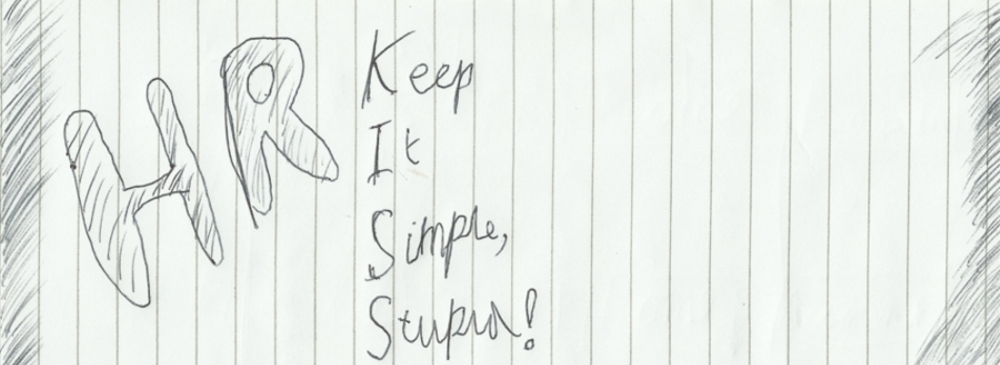 HR
Keep
It
Simple,
Stupid!